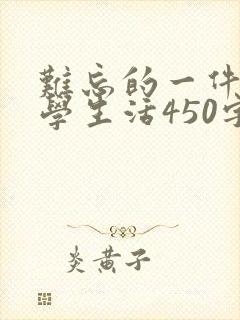 難忘的一件
學生活450字
炎黃子